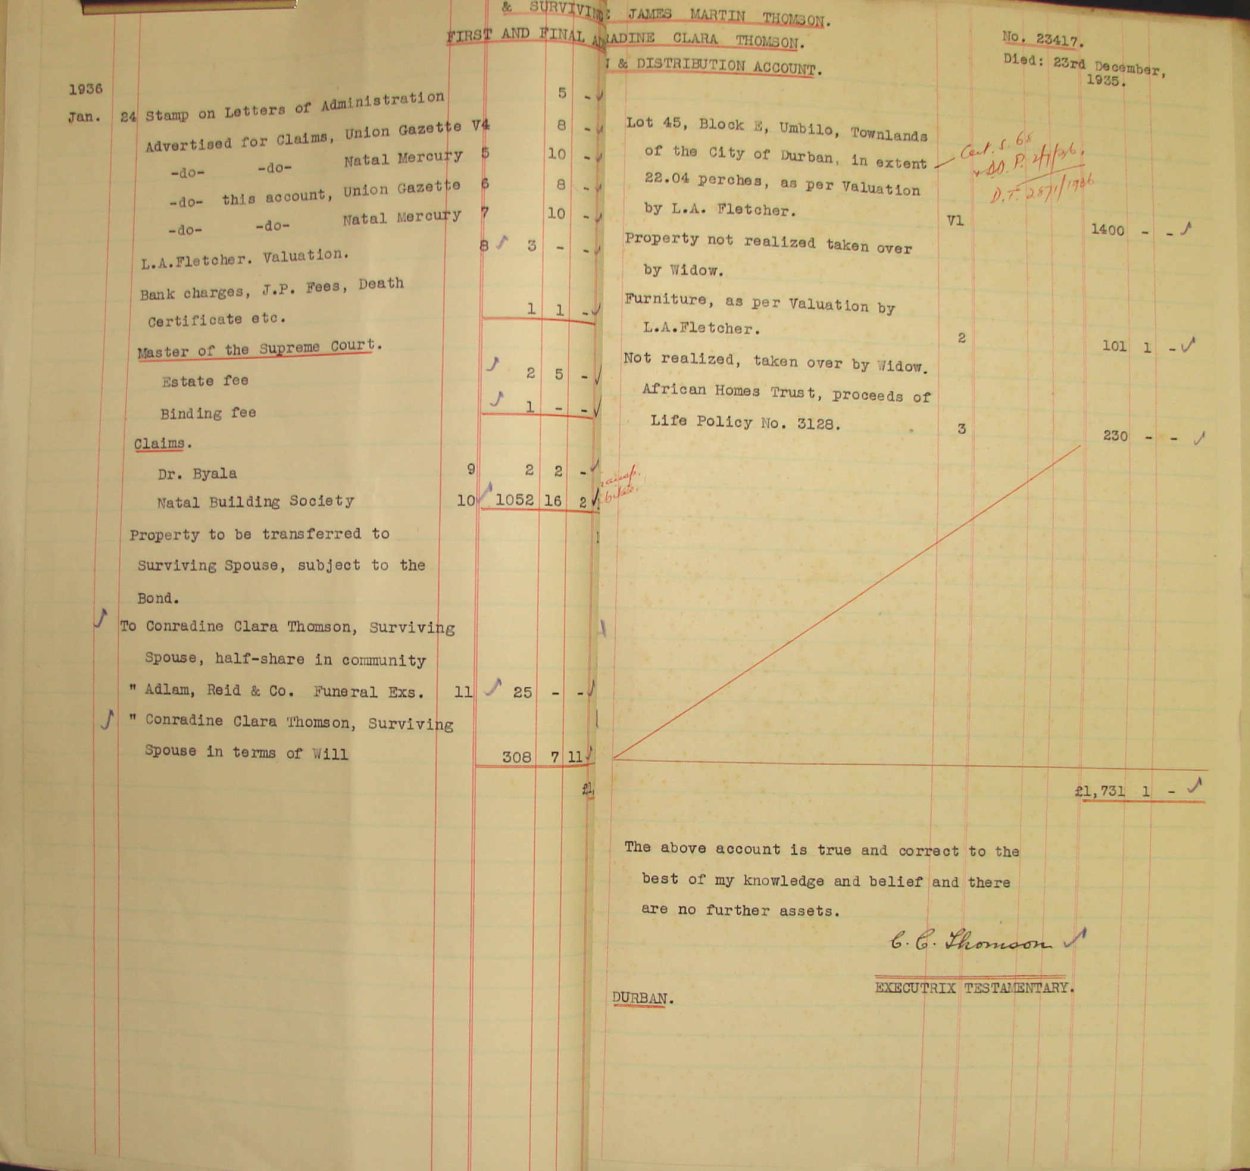 & SURVIVING JAMES MARTIN THOMSON.
FIRST AND FINAL RADINE CLARA THOMSON.
& DISTRIBUTION ACCOUNT.
No. 23417.
Died: 23rd December,
1935.
1936
Jan. 24 Stamp on Letters of Administration 5 -
Advertised for Claims, Union Gazette V4 8 -
-do- -do- Natal Mercury 5 10 -
-do- this account, Union Gazette 6 8 -
-do- -do- Natal Mercury 7 10 -
L.A.Fletcher. Valuation. 8 3 - -
Bank charges, J.P. Fees, Death
Certificate etc. 1 1 -
Master of the Supreme Court.
Estate fee 2 5 -
Binding fee 1 - -
Claims.
Dr. Byala 9 2 2 -
Natal Building Society 10 1052 16 2
Property to be transferred to
Surviving Spouse, subject to the
Bond.
To Conradine Clara Thomson, Surviving
Spouse, half-share in community
" Adlam, Reid & Co. Funeral Exs. 11 25 - -
" Conradine Clara Thomson, Surviving
Spouse in terms of Will 308 7 11
£1
Lot 45, Block E, Umbilo, Townlands
of the City of Durban, in extent
22.04 perches, as per Valuation
by L.A. Fletcher. V1 1400 - -
Property not realized taken over
by Widow.
Furniture, as per Valuation by
L.A.Fletcher. 2 101 1 -
Not realized, taken over by Widow.
African Homes Trust, proceeds of
Life Policy No. 3128. 3 230 - -
£1,731 1 -
The above account is true and correct to the
best of my knowledge and belief and there
are no further assets.
C. C. Thomson
EXECUTRIX TESTAMENTARY.
DURBAN.